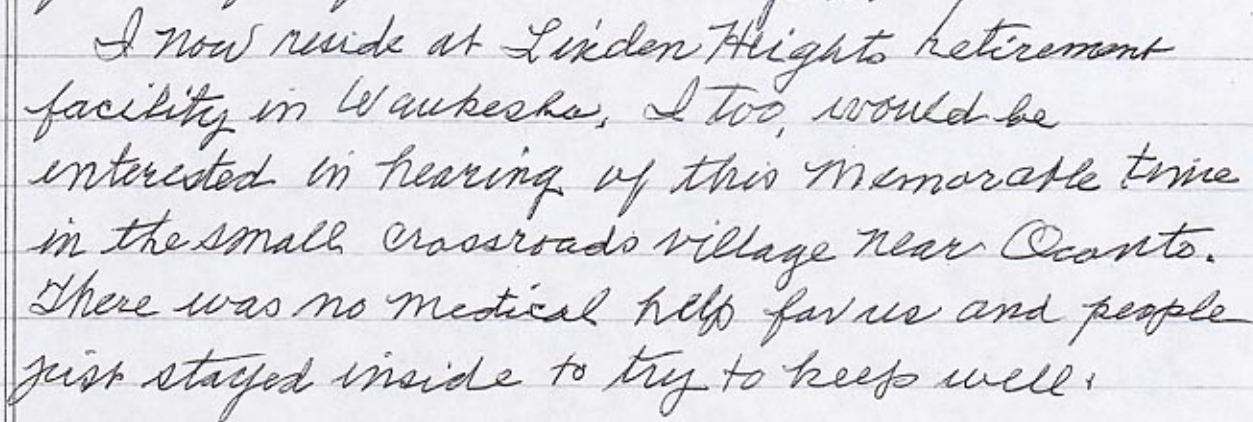 I now reside at Linden Heights retirement
facility in Waukesha, I too, would be
interested in hearing of this memorable time
in the small crossroads village near Oconto.
There was no medical help for us and people
just stayed inside to try to keep well.